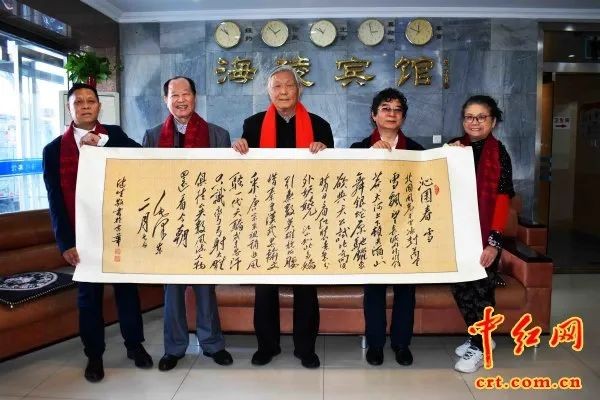 海陵宾馆
沁园春 雪
北国风光千里冰封万里
雪飘望长城内外
大河上下顿失滔滔山
舞银蛇原驰蜡象
欲与天公试比高须
晴日看红装素裹分
外妖娆江山如此多娇
引无数英雄竞折腰
惜秦皇汉武略输文
采唐宗宋祖稍逊风
骚一代天骄成吉思汗
只识弯弓射大雕
俱往矣数风流人物
还看今朝
毛泽东
二月
书于京华
中红网
crt.com.cn